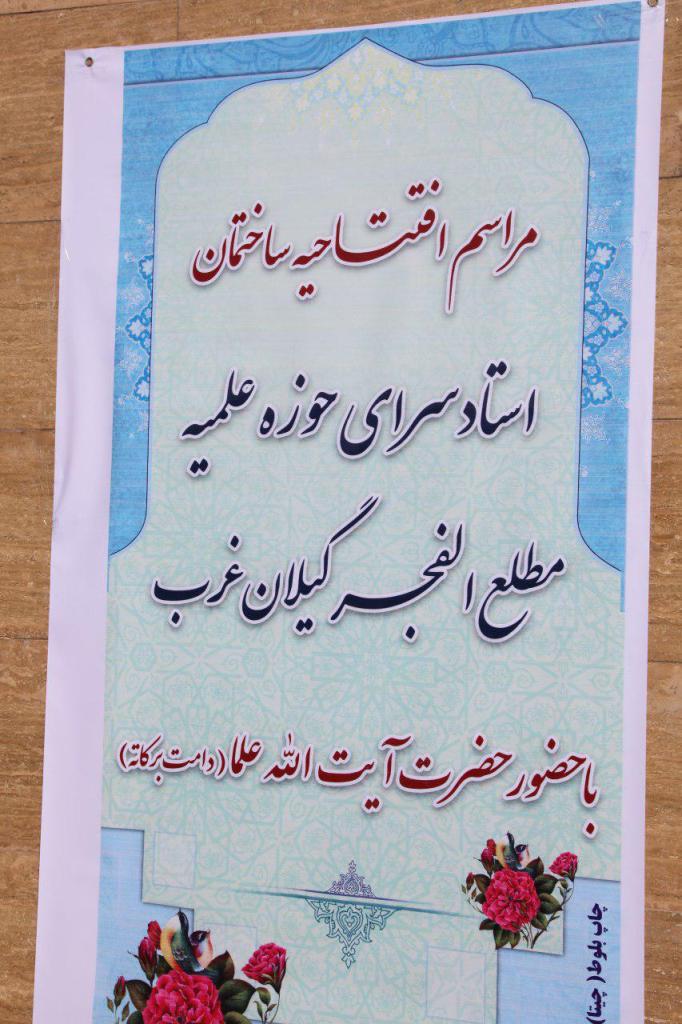 مراسم افتتاحیه ساختمان
استاد سرای حوزه علمیه
مطلع الفجر گیلان غرب
با حضور حضرت آیت الله علما (دامت برکاته)
چاپ بلوط (چیتا)